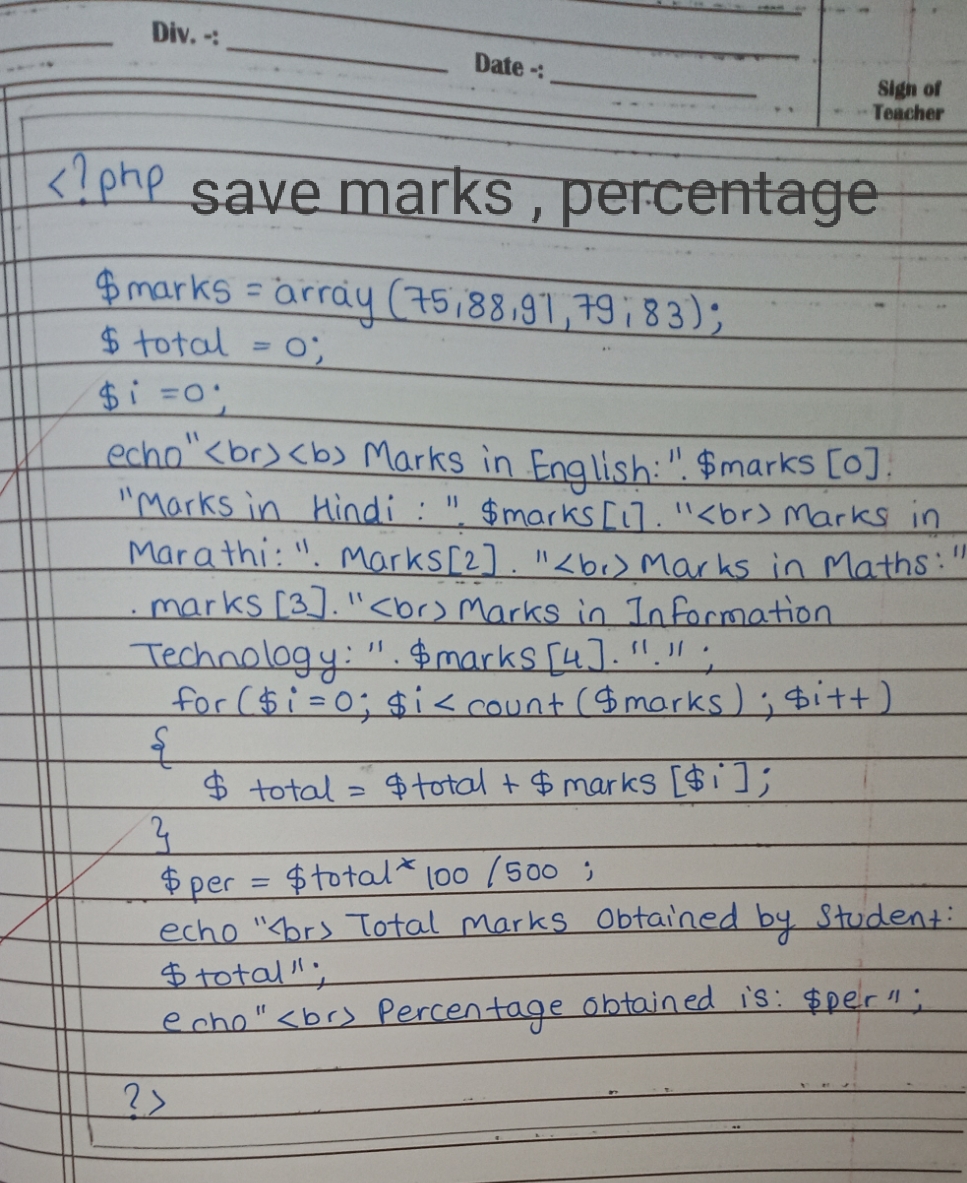 Div. -:
Date -:
Sign of
Teacher
<?php save marks , percentage
$marks = array (75,88,91,79,83);
$ total = 0;
$i =0;
echo"<br><b> Marks in English:". $marks [0].
"Marks in Hindi : ". $marks[1]. "<br> Marks in
Marathi: ". Marks[2]. "<br> Marks in Maths: "
. marks [3]. "<br> Marks in Information
Technology: ". $marks [4]. "." ;
for ($i=0; $i< count ($marks) ; $i++)
{
$ total = $total + $ marks [$i];
}
$per = $total* 100 /500 ;
echo "<br> Total Marks Obtained by Student:
$ total";
echo" <br> Percentage obtained is: $per " ;
?>